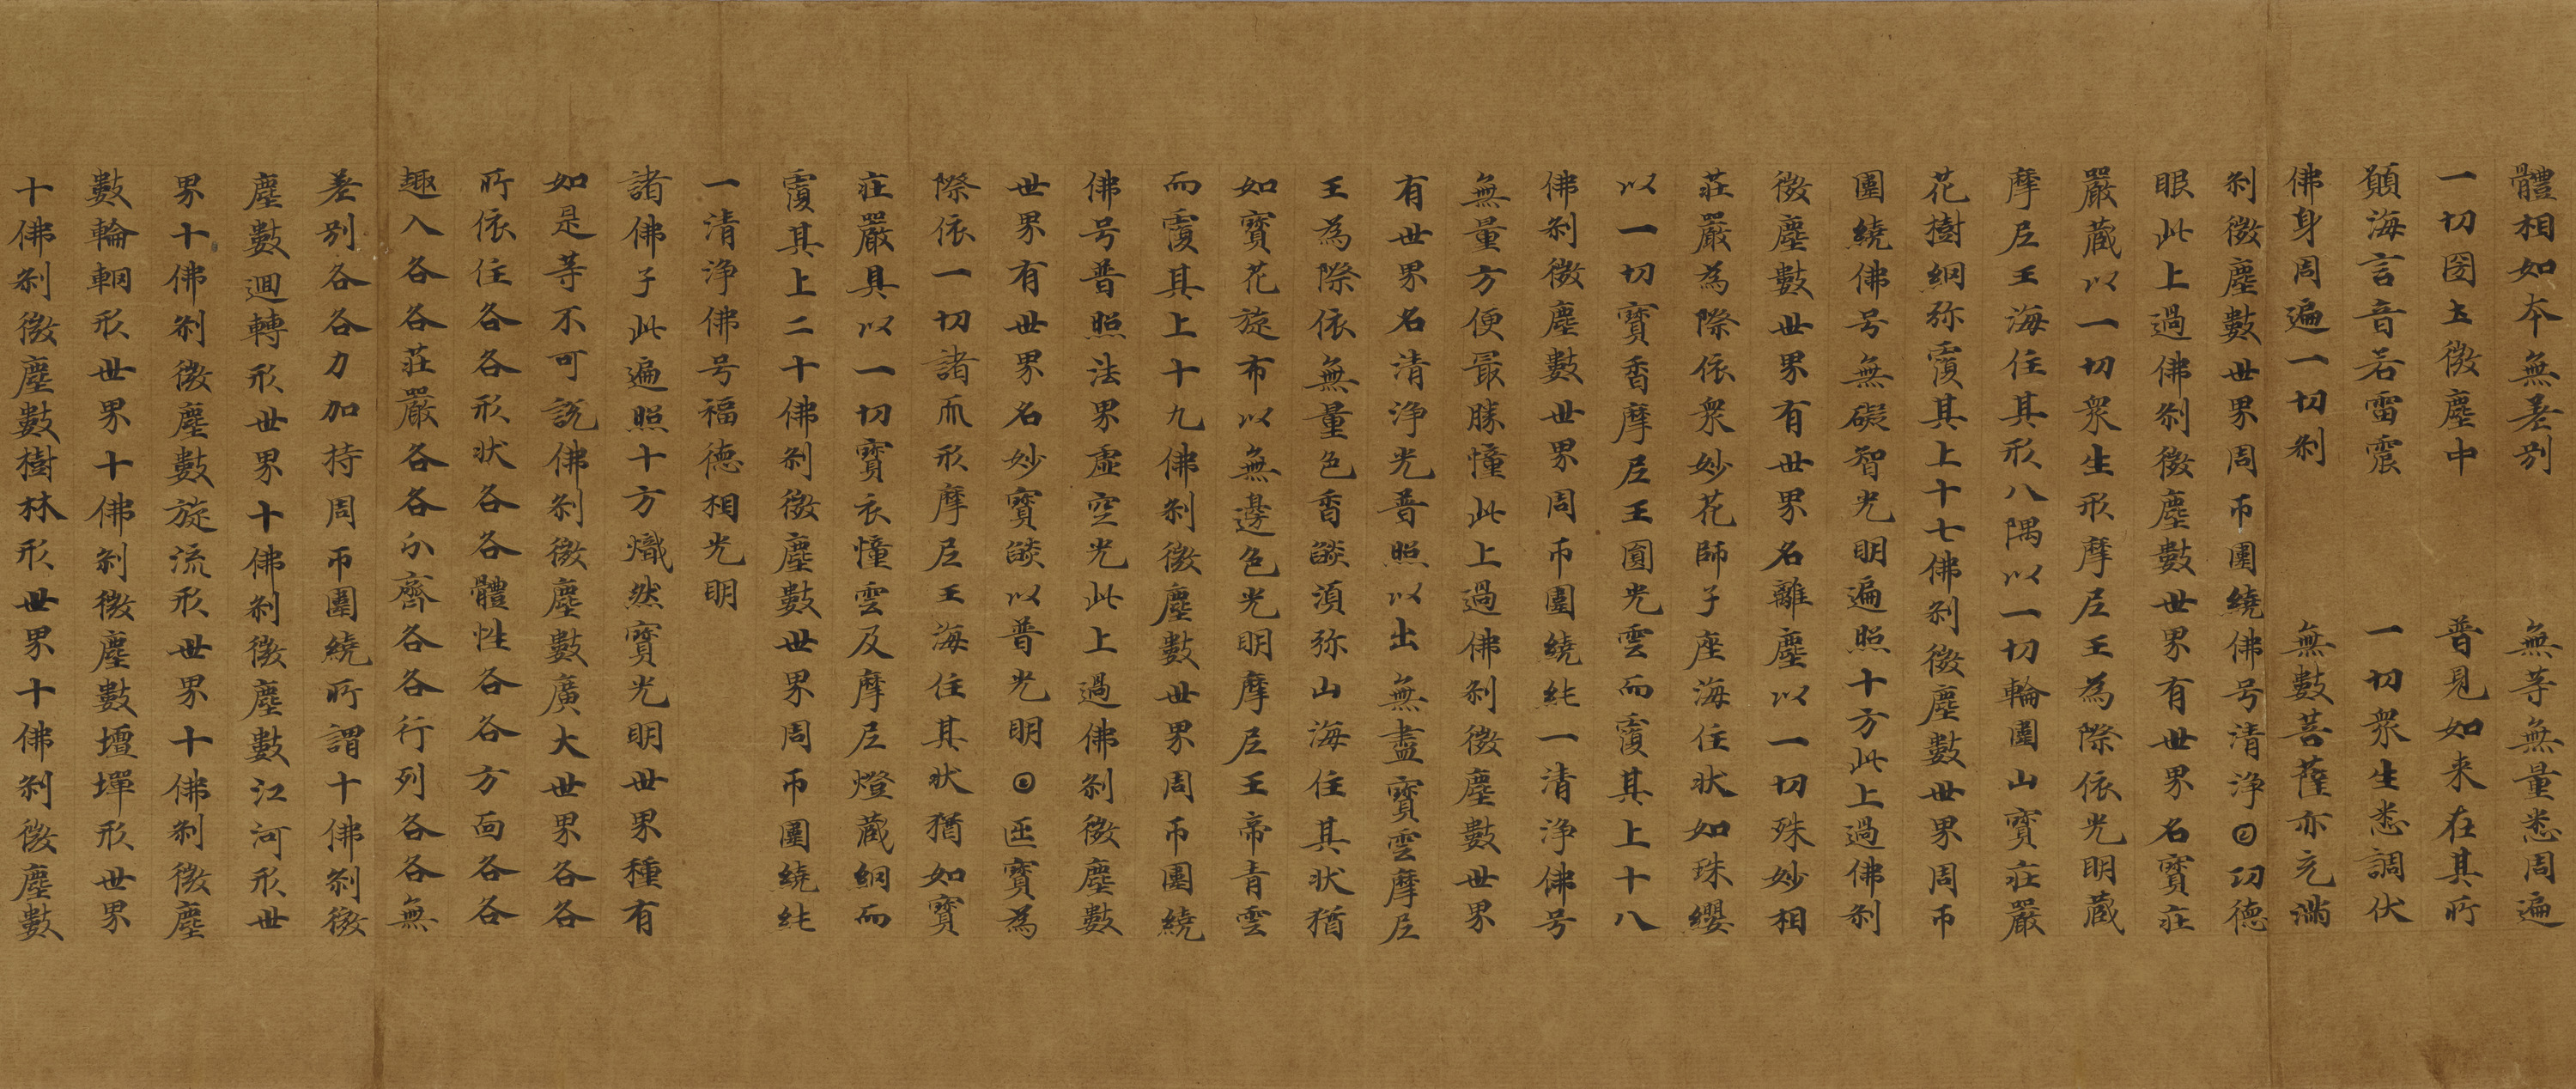 體相如本無差別　無等無量悉周遍
一切圀土微塵中　普見如来在其所
願海言音若雷震　一切衆生悉調伏
佛身周遍一切刹　無數菩薩亦充滿
刹微塵數世界周帀圍繞佛号清淨𡆠功德
眼此上過佛刹微塵數世界有世界名寶莊
嚴藏以一切衆生形摩尼王為際依光明藏
摩尼王海住其形八隅以一切輪圍山寶莊嚴
花樹網弥覆其上十七佛刹微塵數世界周帀
圍繞佛号無礙智光明遍照十方此上過佛刹
微塵數世界有世界名離塵以一切殊妙相
莊嚴為際依衆妙花師子座海住状如珠纓
以一切寶香摩尼王圓光雲而覆其上十八
佛刹微塵數世界周帀圍繞純一清淨佛号
無量方便最勝幢此上過佛刹微塵數世界
有世界名清淨光普照以出無盡寶雲摩尼
王為際依無量色香燄湏弥山海住其状猶
如寶花旋布以無邊色光明摩尼王帝青雲
而覆其上十九佛刹微塵數世界周帀圍繞
佛号普照法界虛空光此上過佛刹微塵數
世界有世界名妙寶燄以普光明𡆠𠥱寶為
際依一切諸爪形摩尼王海住其状猶如寶
莊嚴具以一切寶衣幢雲及摩尼燈藏網而
覆其上二十佛刹微塵數世界周帀圍繞純
一清淨佛号福德相光明
諸佛子此遍照十方熾然寶光明世界種有
如是等不可說佛刹微塵數廣大世界各各
所依住各各形状各各體性各各方面各各
趣入各各莊嚴各各分齊各各行列各各無
差別各各力加持周帀圍繞所謂十佛刹微
塵數迴轉形世界十佛刹微塵數江河形世
界十佛刹微塵數旋流形世界十佛刹微塵
數輪輞形世界十佛刹微塵數壇墠形世界
十佛刹微塵數樹林形世界十佛刹微塵數